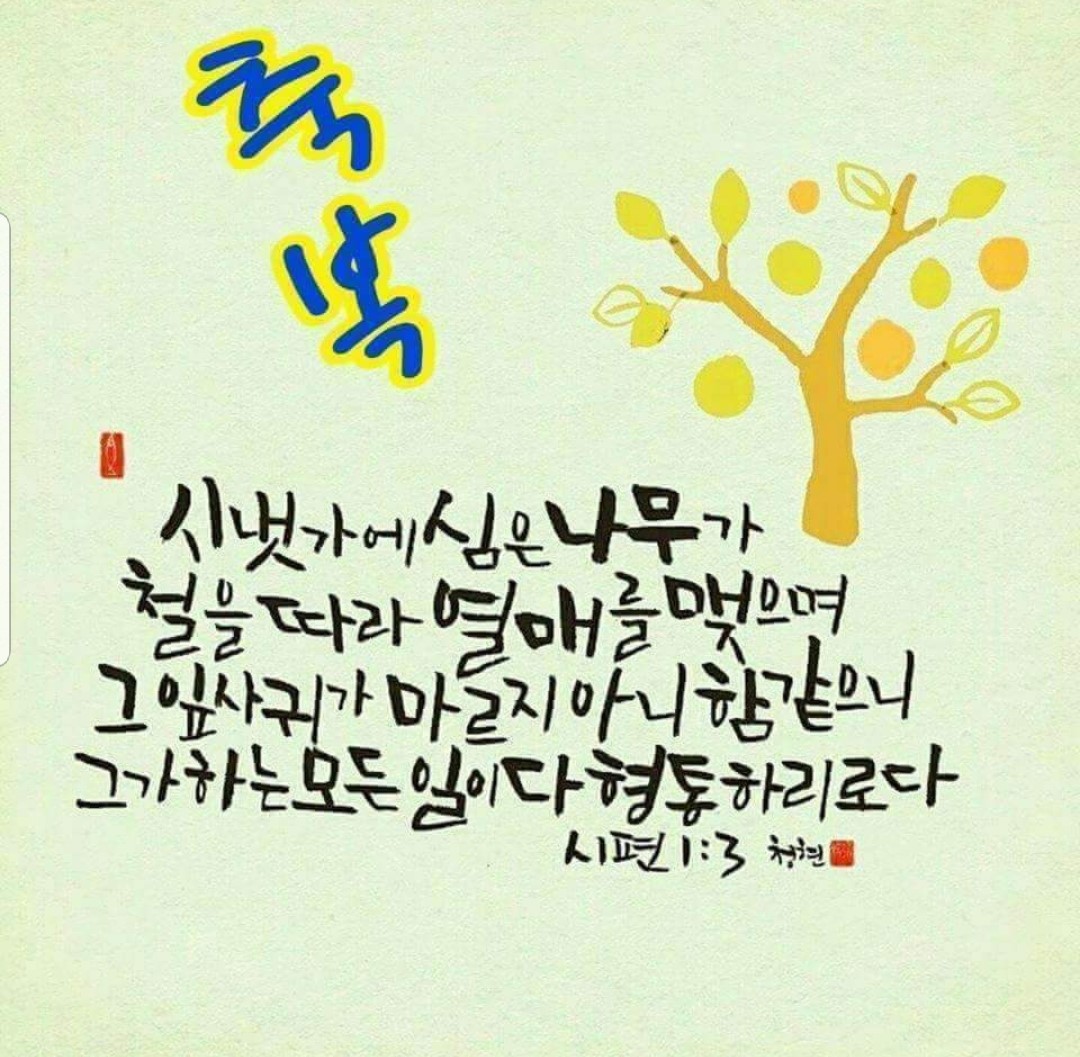 축
복
시냇가에 심은 나무가
철을 따라 열매를 맺으며
그 잎사귀가 마르지 아니함 같으니
그가 하는 모든 일이 다 형통하리로다
시편 1:3 청현